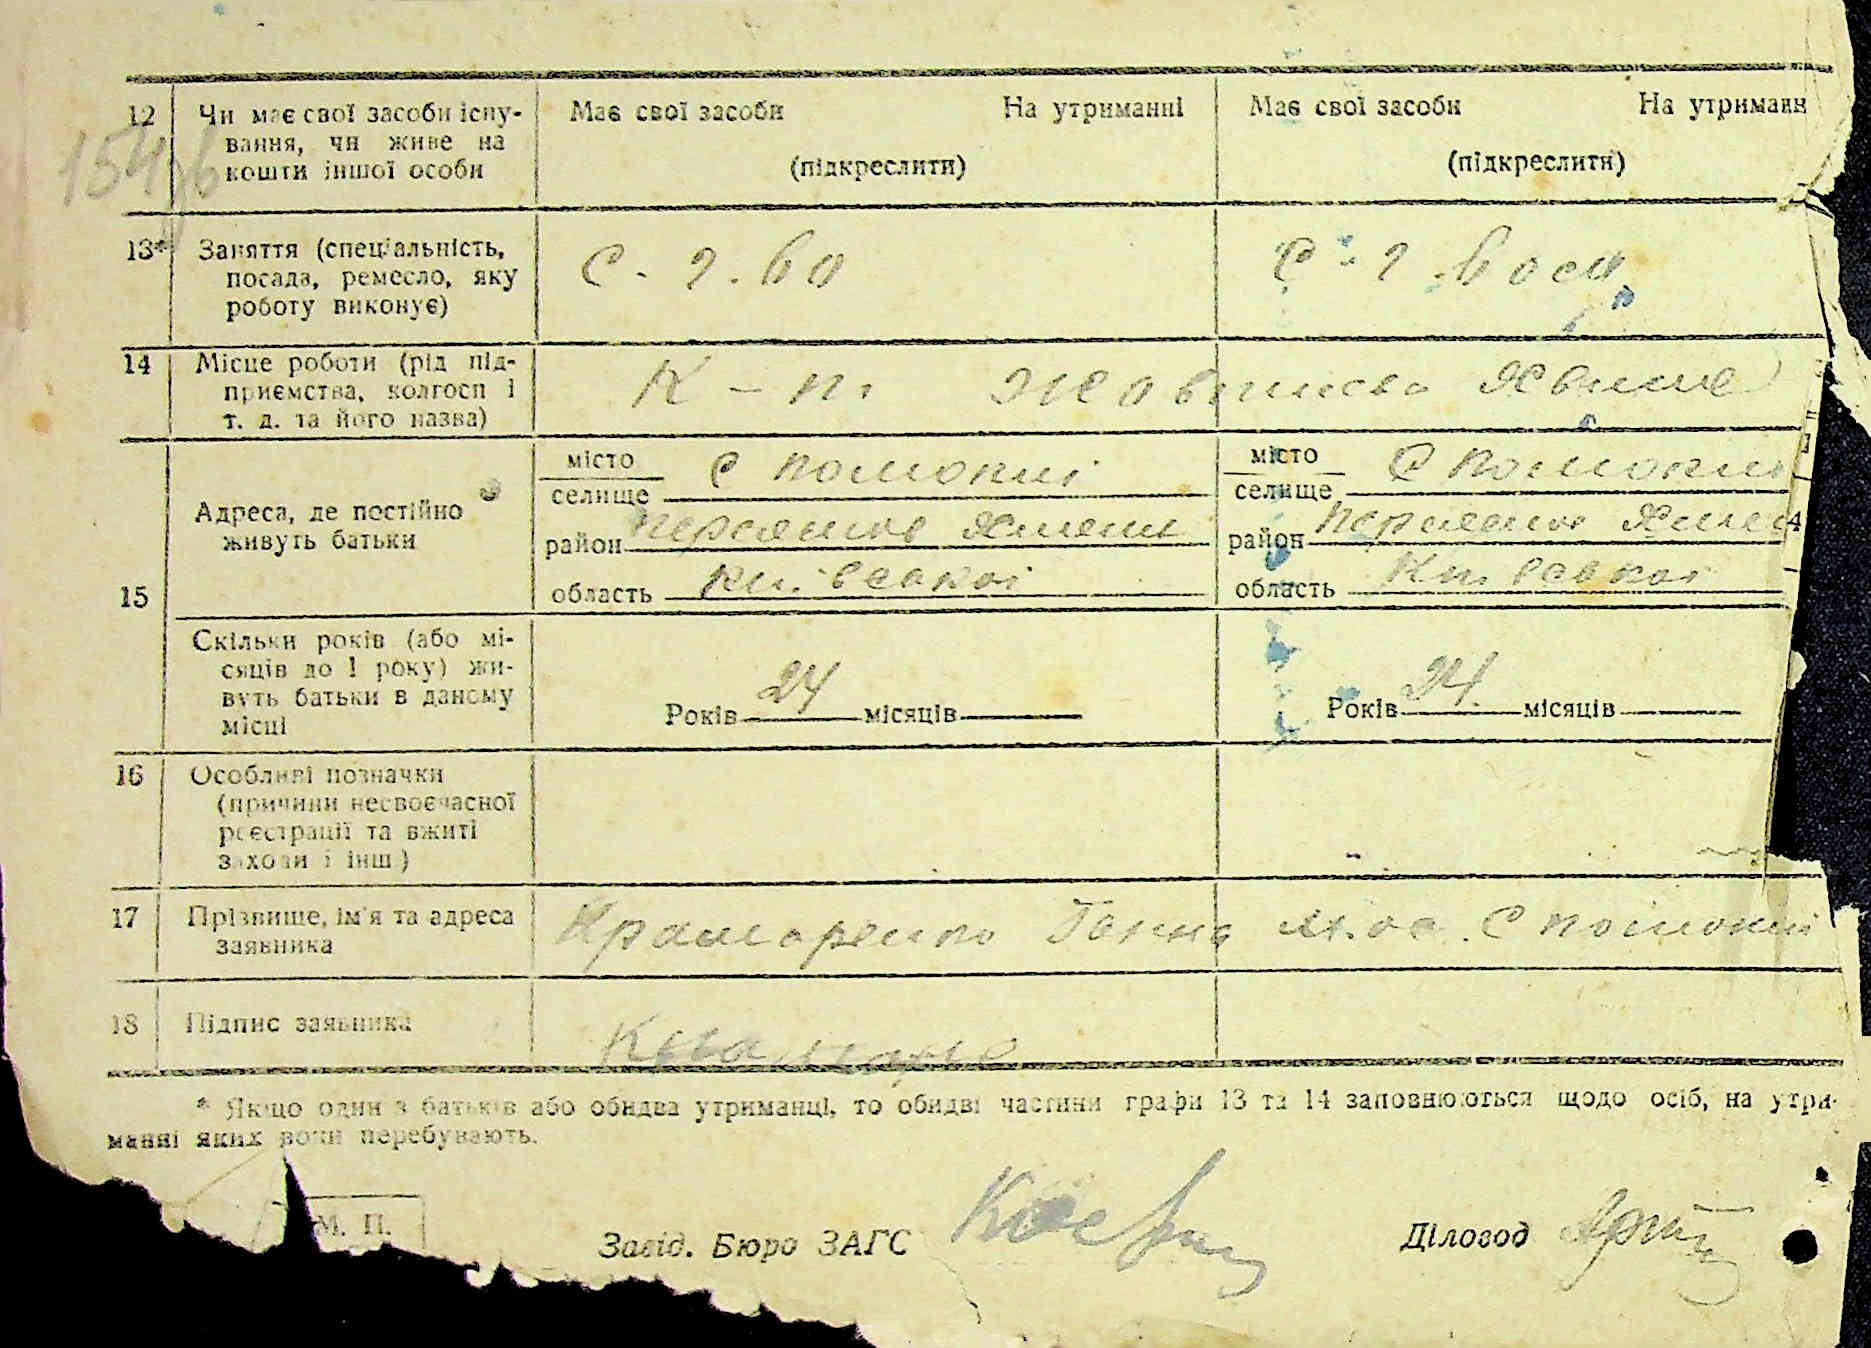 12 Чи має свої засоби існу- Має свої засоби На утриманні Має свої засоби На утриманн
вання, чи живе на
кошти іншої особи (підкреслити) (підкреслити)
154
13* Заняття (спеціальність, С. г. С. г.
посада, ремесло, яку
роботу виконує)
14 Місце роботи (рід під- К-п
приємства, колгосп і
т. д. та його назва)
15 Адреса, де постійно
живуть батьки
місто с Помокпі місто с Помокпі
селище селище
район Переяслов Хмельн район Переяслов Хмел
область Київської область Київської
Скільки років (або мі-
сяців до 1 року) жи-
вуть батьки в даному
місці
Років 24 місяців Років 24 місяців
16 Особливі позначки
(причини несвоєчасної
реєстрації та вжиті
заходи і інш.)
17 Прізвище, ім'я та адреса Крамаренко Ганна с Помокпі
заявника
18 Підпис заявника
* Якщо один з батьків або обидва утриманці, то обидві частини графи 13 та 14 заповнюються щодо осіб, на утри-
манні яких вони перебувають.
М. П.
Завід. Бюро ЗАГС Діловод